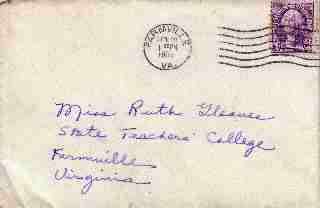 FARMVILLE
VA.
Miss Ruth Gleaves
State Teachers' College
Farmville
Virginia